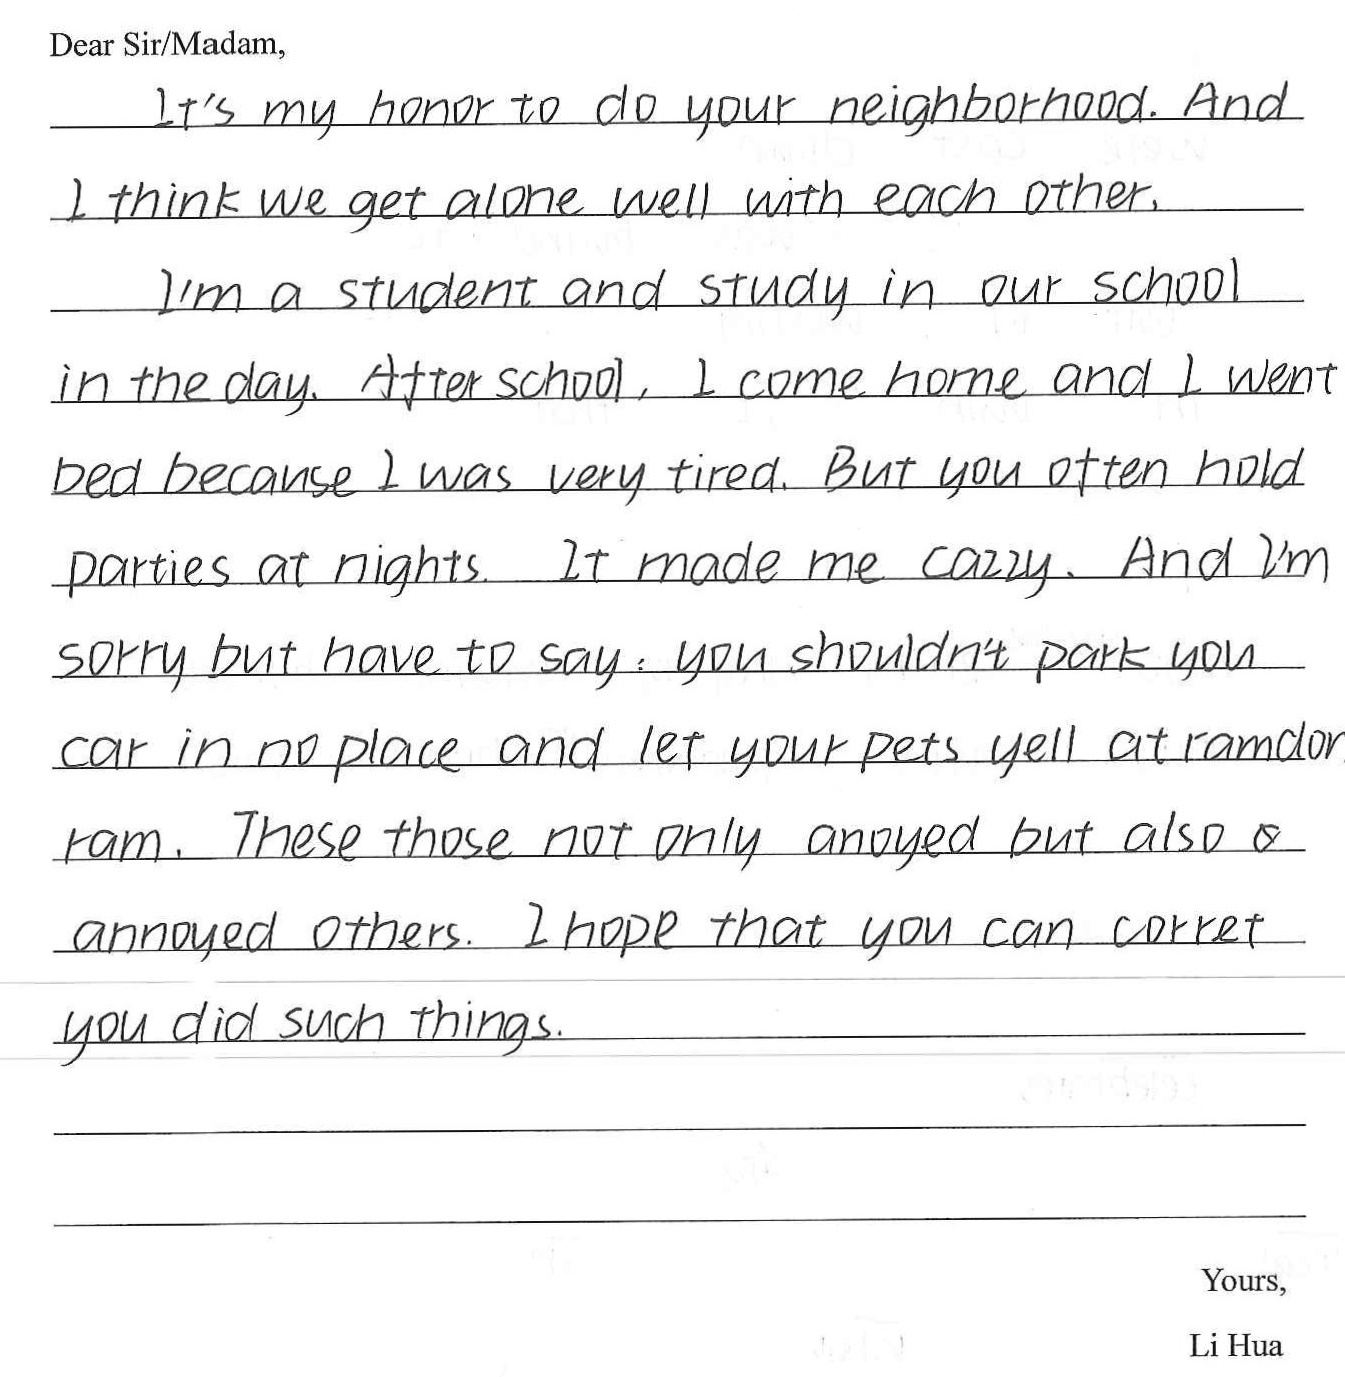 Dear Sir/Madam,
It's my honor to do your neighborhood. And
I think we get alone well with each other.
I'm a student and study in our school
in the day. After school, I come home and I went
bed because I was very tired. But you often hold
parties at nights. It made me cazzy. And I'm
sorry but have to say: you shouldn't park you
car in no place and let your pets yell at ramdon
ram. These those not only anoyed but also
annoyed others. I hope that you can corret
you did such things.
Yours,
Li Hua